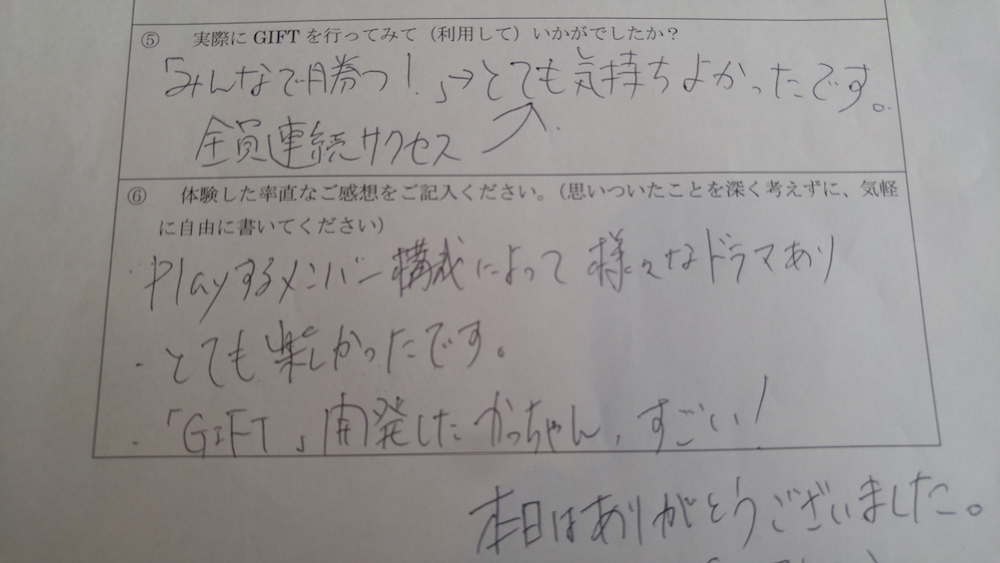 ⑤ 実際に GIFT を行ってみて（利用して）いかがでしたか？
「みんなで勝つ！」→とても気持ちよかったです。
全員連続サクセス ↗
⑥ 体験した率直なご感想をご記入ください。（思いついたことを深く考えずに、気軽
に自由に書いてください）
・Playするメンバー構成によって様々なドラマあり
・とても楽しかったです。
・「GIFT」開発したかっちゃん、すごい！
本日はありがとうございました。